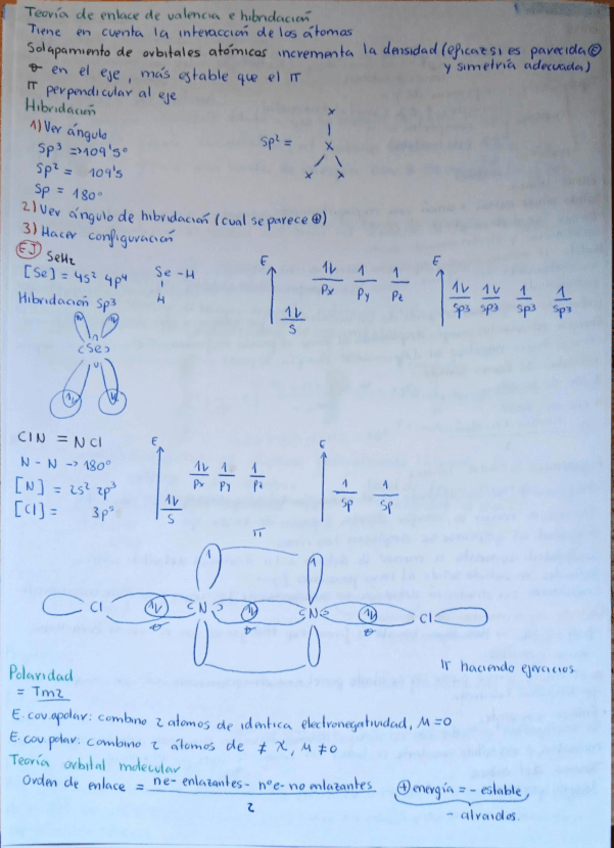 Teoría de enlace de valencia e hibridación
Tiene en cuenta la interacción de los átomos
Solapamiento de orbitales atómicos incrementa la densidad (eficaz si es parecida E
y simetría adecuada)
σ en el eje, más estable que el π
π perpendicular al eje
Hibridación
1) Ver ángulo
Sp³ => 109'5°
Sp² = 109'5
Sp = 180°
Sp² =
x
x
x x
2) Ver ángulo de hibridación (cual se parece ⊕)
3) Hacer configuración
EJ SeH₂
[Se] = 4s² 4p⁴
Se - H
H
Hibridación Sp3
(Se)
E
1v 1 1
Px Py Pz
1v
S
E
1v 1v 1 1
Sp3 Sp3 Sp3 Sp3
ClN = NCl
N - N -> 180°
[N] = 2s² 2p³
[Cl] = 3p⁵
E
1v 1 1
Px Py Pz
1v
S
E
1 1
Sp Sp
π
1 1
Cl 1v N 1v N 1v Cl
σ σ σ
Ir haciendo ejercicios
Polaridad
= Tm2
E. cov. apolar: combino 2 atomos de identica electronegatividad, M=0
E. cov. polar: combino 2 átomos de ≠ X, M≠0
Teoría orbital molecular
Orden de enlace = ne- enlazantes - nºe- no enlazantes
2
⊕ energía = - estable
- atraidos.